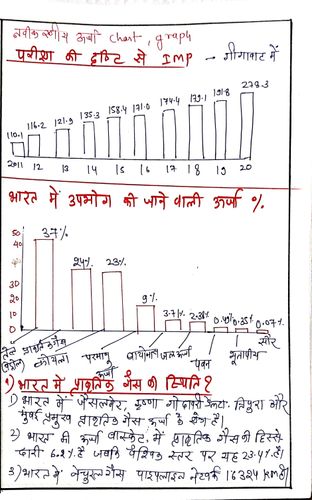 नवीकरणीय ऊर्जा chart, graph
परीक्षा की दृष्टि से IMP - गीगावाट में
110.1 116.2 121.9 135.3 158.4 171.0 174.4 179.1 191.8 278.3
2011 12 13 14 15 16 17 18 19 20
भारत में उपभोग की जाने वाली ऊर्जा %
50
40
30
20
10
0
37% 24% 23% 9% 3.7%
0.07%
तेल प्राकृतिक गैस कोयला परमाणु ऊर्जा बायोमास जल ऊर्जा पवन भूतापीय सौर
1) भारत में प्राकृतिक गैस की स्थिति?
1) भारत में जैसलमेर, कृष्णा गोदावरी त्रिपुरा और
मुंबई प्रमुख प्राकृतिक गैस ऊर्जा के क्षेत्र है।
2) भारत की ऊर्जा बास्केट में प्राकृतिक गैस की हिस्से
दारी 6.2% है जबकि वैश्विक स्तर पर यह 23.4% है।
3) भारत में नेचुरल गैस पाइपलाइन नेटवर्क 16324 km है।